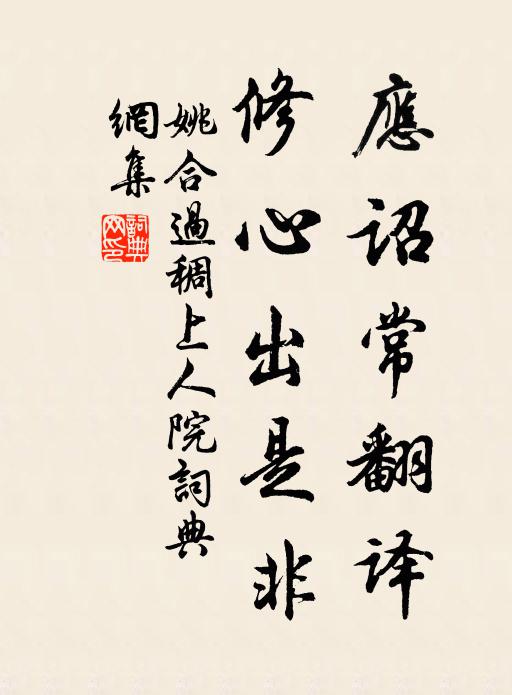 應诏常翻译
修心出是非
姚合過稠上人院詞典
網集
詞典
网印